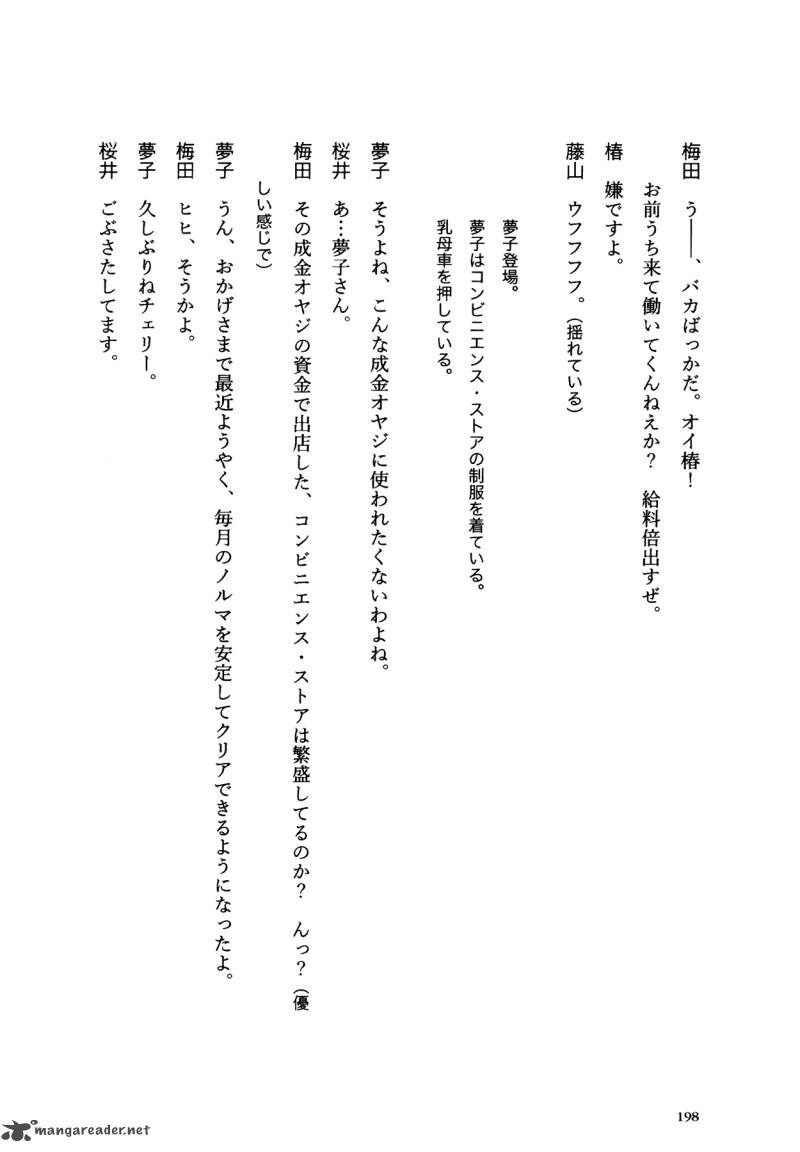 梅田　う――、バカばっかだ。オイ椿！
お前うち来て働いてくんねえか？　給料倍出すぜ。
椿　嫌ですよ。
藤山　ウフフフフ。（揺れている）
夢子登場。
夢子はコンビニエンス・ストアの制服を着ている。
乳母車を押している。
夢子　そうよね、こんな成金オヤジに使われたくないわよね。
桜井　あ…夢子さん。
梅田　その成金オヤジの資金で出店した、コンビニエンス・ストアは繁盛してるのか？　んっ？（優
しい感じで）
夢子　うん、おかげさまで最近ようやく、毎月のノルマを安定してクリアできるようになったよ。
梅田　ヒヒ、そうかよ。
夢子　久しぶりねチェリー。
桜井　ごぶさたしてます。
198
mangareader.net